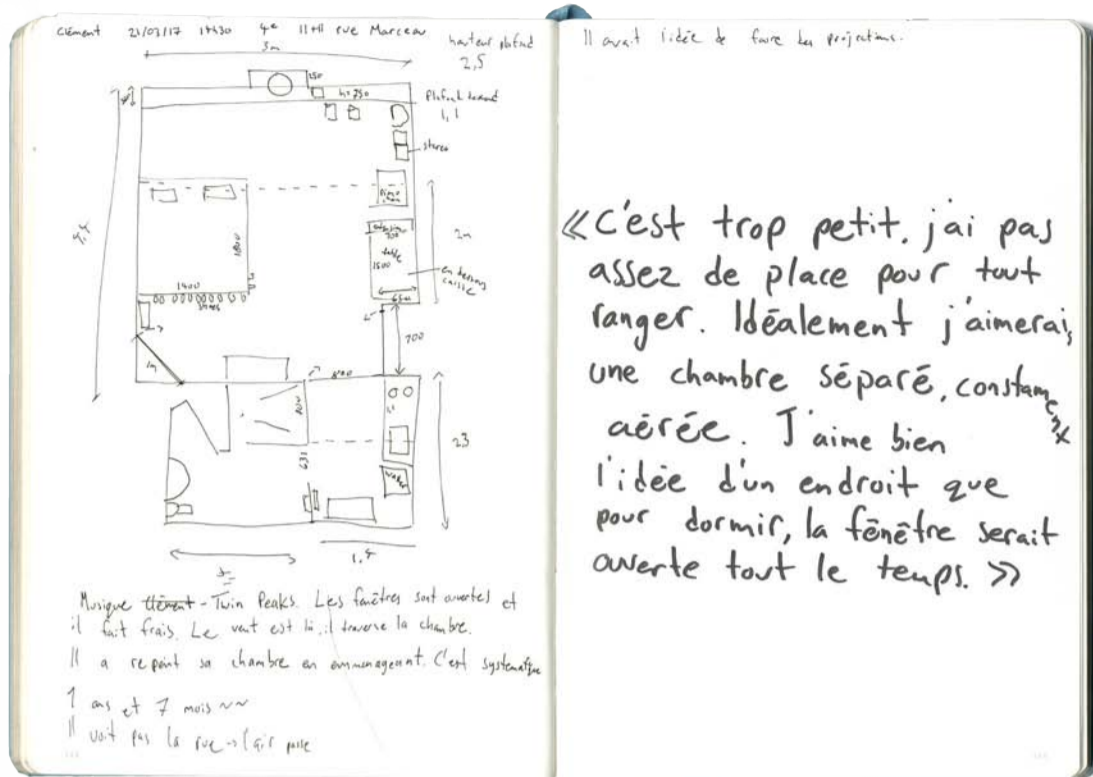 Clément 21/03/17 4e rue Marceau
hauteur plafond
2,5
5m
150
h=250
1,1
stereo
2m
1800
table
1500
en dessous
caisse
1400
650
700
1m
800
23
631
1,4
Musique Clément - Twin Peaks. Les fenêtres sont ouvertes et
il fait frais. Le vent est là, il traverse la chambre.
Il a repeint sa chambre en emmenageant. C'est systematique
1 ans et 7 mois ~~
Il voit pas la rue → l'air passe
Il avait l'idée de faire des projections.
«C'est trop petit. j'ai pas
assez de place pour tout
ranger. Idéalement j'aimerais
une chambre séparé, constamment
aérée. J'aime bien
l'idée d'un endroit que
pour dormir, la fênêtre serait
ouverte tout le temps.»